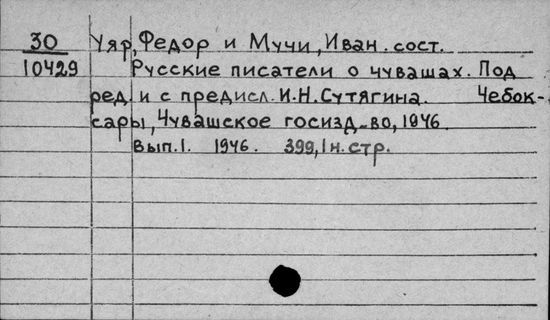 30 Уяр, Федор и Мучи, Иван. сост.
10429 Русские писатели о чувашах. Под
ред. и с предисл. И.Н. Сутягина. Чебок-
сары, Чувашское госизд-во, 1946.
Вып.1. 1946. 399, 1 н. стр.